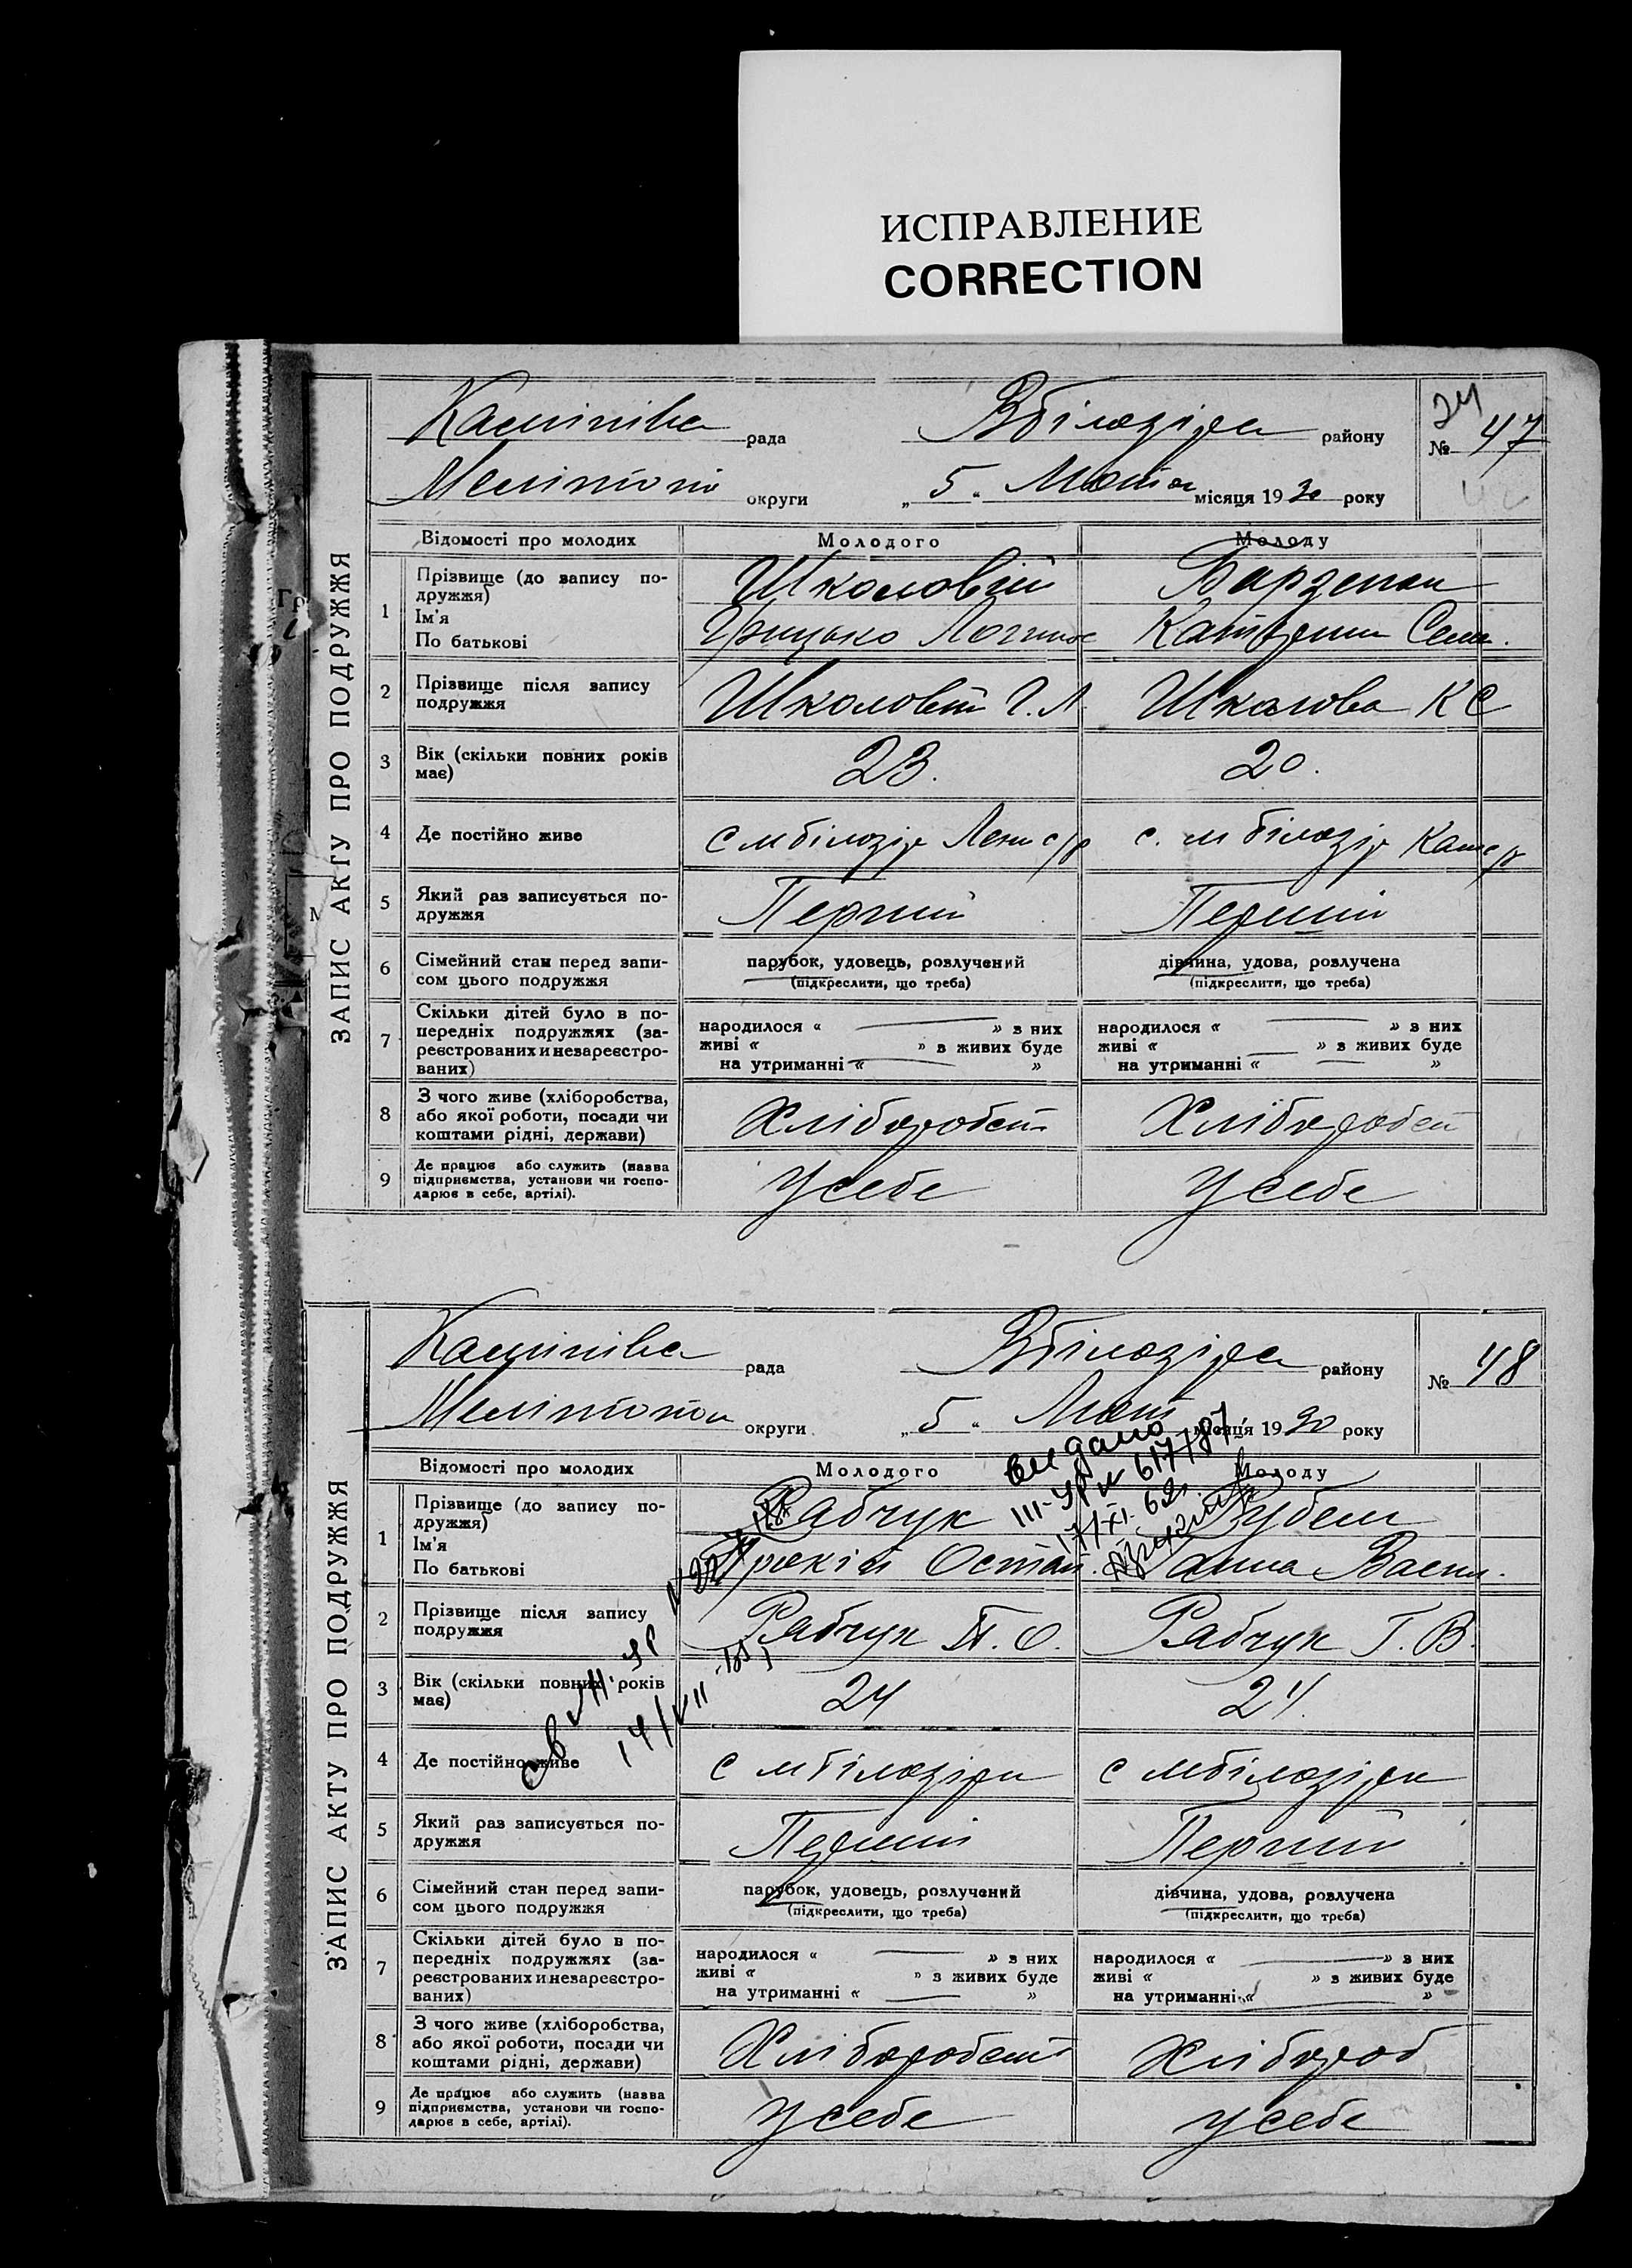 ИСПРАВЛЕНИЕ
CORRECTION
ЗАПИС АКТУ ПРО ПОДРУЖЖЯ
рада Вбілозірса району
24
№ 47
округи „ 5 “ місяця 1930 року
Відомості про молодих Молодого Молоду
1 Прізвище (до запису по-
дружжя)
Ім'я
По батькові
Школовій
Грицько
2 Прізвище після запису
подружжя
Школовій Г. Л. Школова К С
3 Вік (скільки повних років
має)
23. 20.
4 Де постійно живе
с с. м
5 Який раз записується по-
дружжя
Перший Перший
6 Сімейний стан перед запи-
сом цього подружжя
парубок, удовець, розлучений
(підкреслити, що треба)
дівчина, удова, розлучена
(підкреслити, що треба)
7 Скільки дітей було в по-
передніх подружжях (за-
реєстрованих и незареєстро-
ваних)
народилося « » з них
живі « » з живих буде
на утриманні « »
народилося « » з них
живі « » з живих буде
на утриманні « »
8 З чого живе (хліборобства,
або якої роботи, посади чи
коштами рідні, держави)
Хліборобст Хліборобст
9 Де працює або служить (назва
підприємства, установи чи госпо-
дарює в себе, артілі).
У себе У себе
ЗАПИС АКТУ ПРО ПОДРУЖЖЯ
рада Вбілозірса району
№ 48
округи „ 5 “ Лют місяця 1930 року
Відомості про молодих Молодого Молоду
Выдано
III-УР № 617787
17/XI-62г.
1 Прізвище (до запису по-
дружжя)
Ім'я
По батькові
Рабчук
Остап. Ганна Васил.
2 Прізвище після запису
подружжя
Рабчук П. О. Рабчук Г. В.
3 Вік (скільки повних років
має)
24 24
14/VII
4 Де постійно живе
с мбілозірси с мбілозірси
5 Який раз записується по-
дружжя
Перший Перший
6 Сімейний стан перед запи-
сом цього подружжя
парубок, удовець, розлучений
(підкреслити, що треба)
дівчина, удова, розлучена
(підкреслити, що треба)
7 Скільки дітей було в по-
передніх подружжях (за-
реєстрованих и незареєстро-
ваних)
народилося « » з них
живі « » з живих буде
на утриманні « »
народилося « » з них
живі « » з живих буде
на утриманні « »
8 З чого живе (хліборобства,
або якої роботи, посади чи
коштами рідні, держави)
Хліборобст Хлібороб
9 Де працює або служить (назва
підприємства, установи чи госпо-
дарює в себе, артілі).
У себе У себе